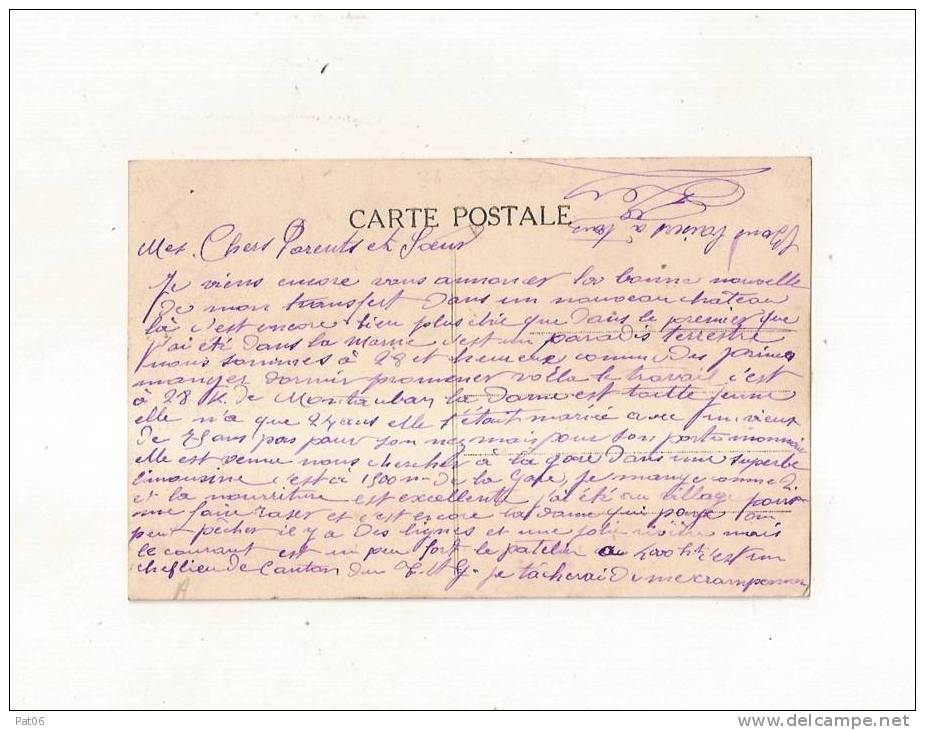 CARTE POSTALE
Mes Chers Parents et Sœur
Je viens encore vous annoncer la bonne nouvelle
de mon transfert dans un nouveau château
là c'est encore bien plus chic que dans le premier que
j'ai été dans la Marne c'est un paradis terrestre
nous sommes à 28 et heureux comme des
manger dormir promener voilà le travail c'est
à 28 K. de Montauban la dame est toute jeune
elle n'a que 24 ans elle s'était mariée avec un vieux
de 75 ans pas pour son nez mais pour son porte monnaie
elle est venue nous chercher à la gare dans une superbe
limousine c'est à 1500 m de la gare, je mange comme 2
et la nourriture est excellente j'ai été au village pour
me faire raser et c'est encore la dame qui paye on
peut pêcher il y a des lignes et une jolie rivière mais
le courant est un peu fort le patelin a 2000 ht c'est un
cheflieu de Canton du T. et G. je tâcherai de me cramponner
à
Pat06
www.delcampe.net